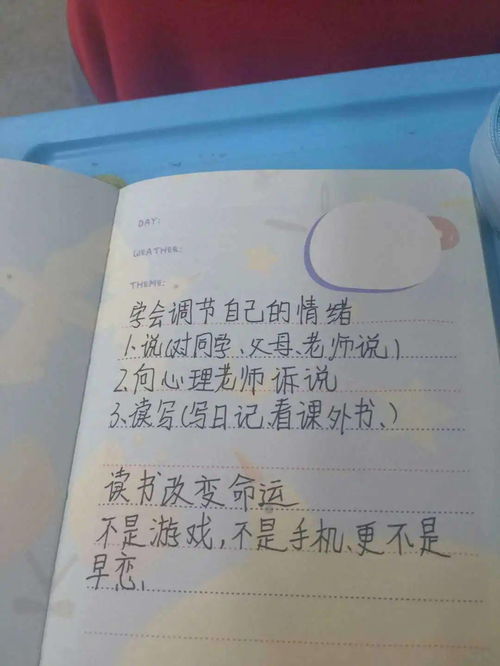 DAY:
WEATHER:
THEME:
学会调节自己的情绪
1、说(对同学、父母、老师说)
2、向心理老师诉说
3、读写(写日记、看课外书、)
读书改变命运
不是游戏,不是手机、更不是
早恋、